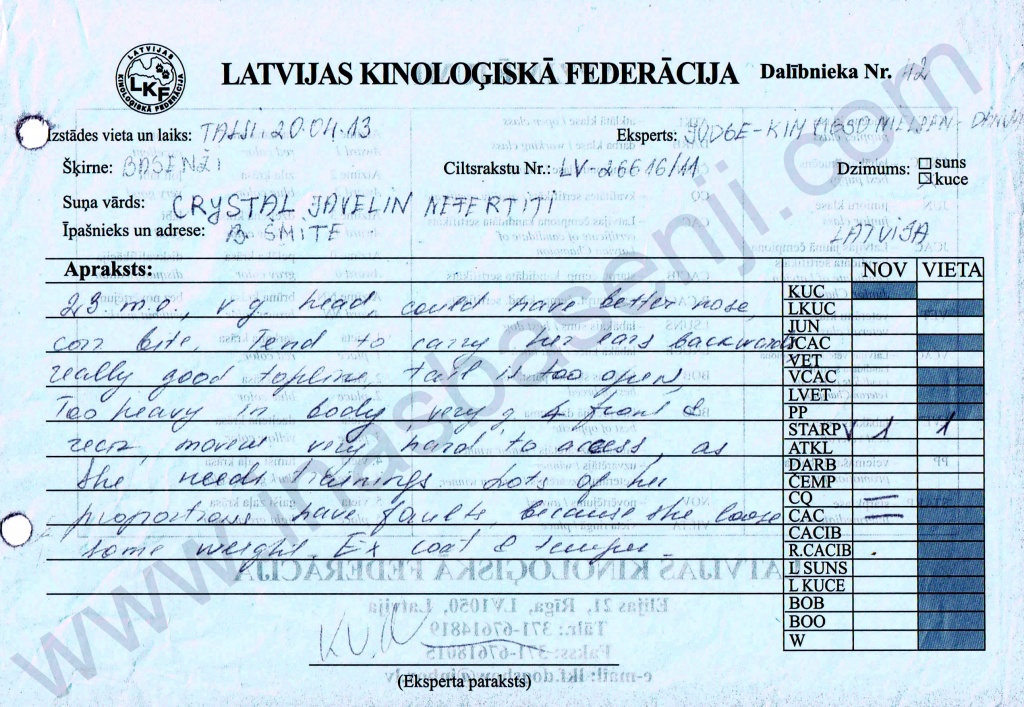 LATVIJAS KINOLOĢISKĀ FEDERĀCIJA
LKF
LATVIJAS KINOLOĢISKĀ FEDERĀCIJA Dalībnieka Nr. 42
Izstādes vieta un laiks: TALSI. 20.04.13 Eksperts: JUDGE - KIM NIELSEN -
Šķirne: BASENŽI Ciltsrakstu Nr.: LV-26616/11 Dzimums: suns
kuce
Suņa vārds: CRYSTAL JAVELIN NEFERTITI
Īpašnieks un adrese: B. ŠMITE LATVIJA
Apraksts: NOV VIETA
23 m.o., v.g. head, could have better nose KUC
LKUC
corr bite. Tend to carry her ears backwards JUN
JCAC
really good topline, tail is too open, VET
VCAC
Too heavy in body, very g front & LVET
PP
rear, moves very hard to access, as STARP V 1 1
ATKL
she needs trainings. Lots of her DARB
ČEMP
proportions have faults, because she loose CQ =
CAC =
some weight. Ex coat & temper. CACIB
R.CACIB
L SUNS
L KUCE
BOB
BOO
W
(Eksperta paraksts)
www.inasbasenji.com